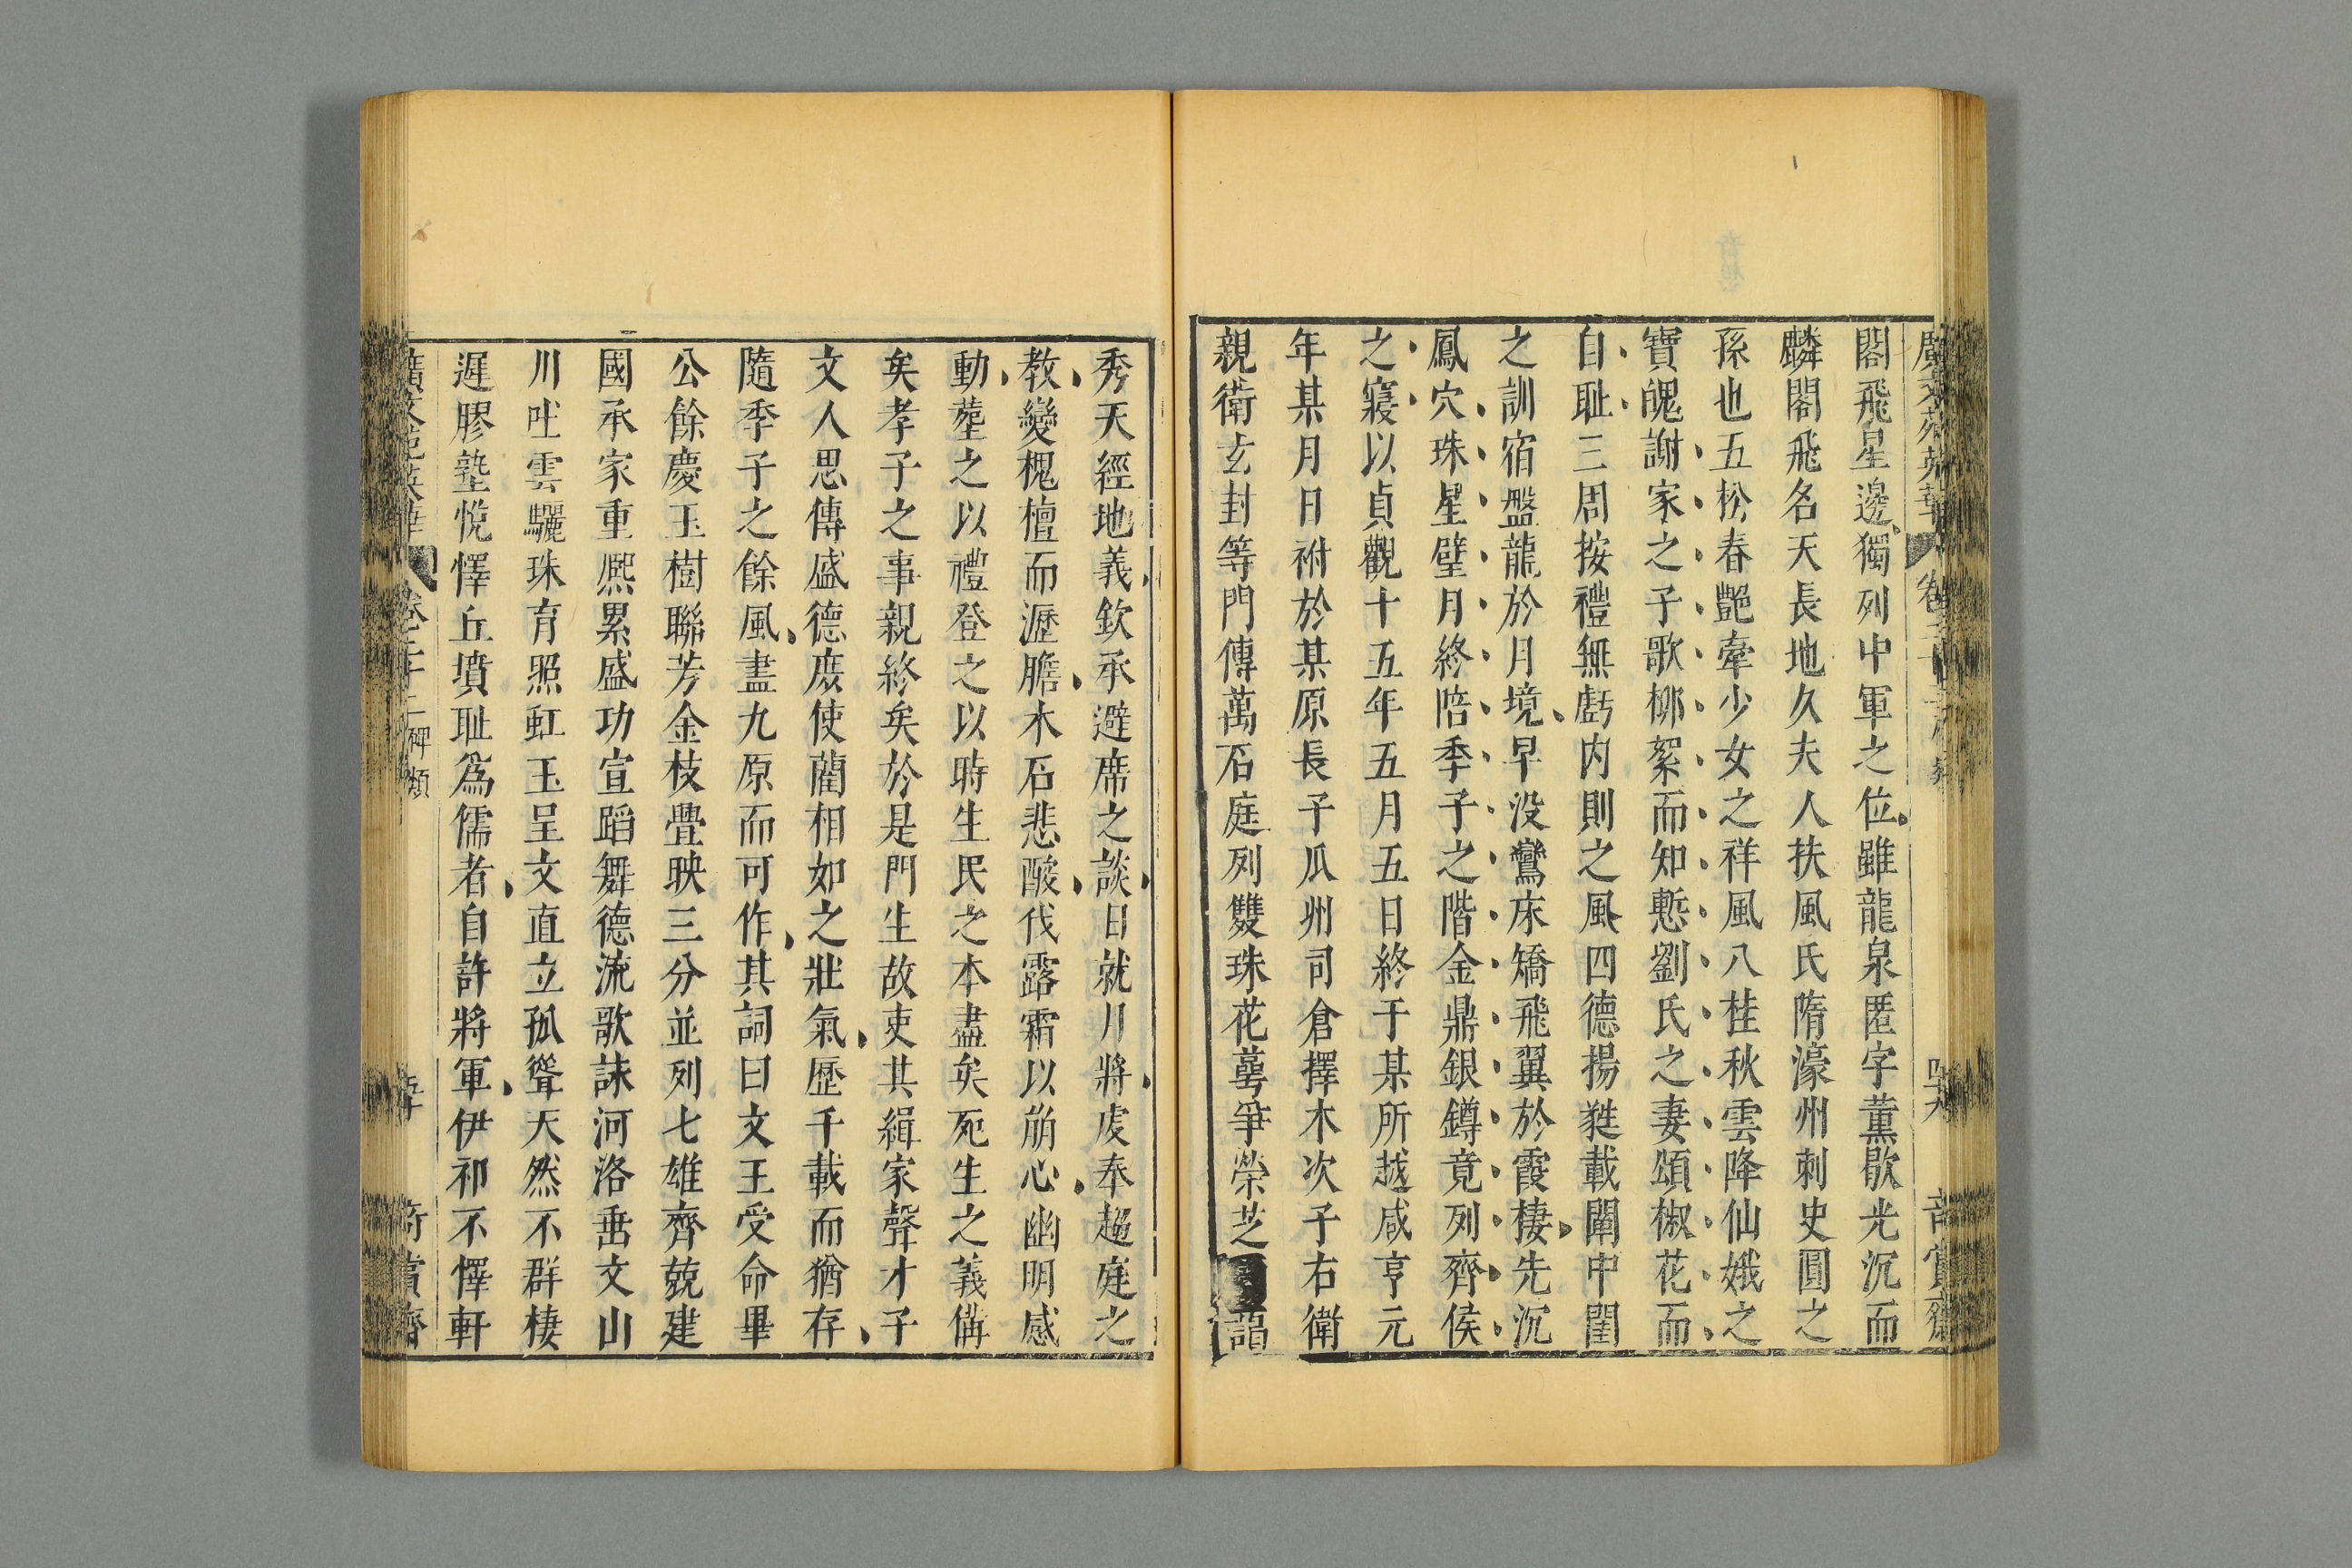 閣飛星邊獨列中軍之位雖龍泉匿字薫歇光沉而
麟閣飛名天長地久夫人扶風氏隋濠州刺史圓之
孫也五松春艶牽少女之祥風八桂秋雲降仙娥之
寶魄謝家之子歌柳絮而知慙劉氏之妻頌椒花而
自耻三周按禮無虧内則之風四德揚蕤載闡中閨
之訓宿盤龍於月境早没鸞床矯飛翼於霞棲先沉
鳳穴珠星璧月終陪季子之階金鼎銀鐏竟列齊侯
之寢以貞觀十五年五月五日終于某所越咸亨元
年某月日祔於某原長子瓜州司倉擇木次子右衛
親衛玄封等門傳萬石庭列雙珠花蕚爭榮芝
秀天經地義欽承避席之談日就月將虔奉趨庭之
教變槐檀而瀝膽木石悲酸伐露霜以崩心幽明感
動塟之以禮登之以時生民之本盡矣死生之義備
矣孝子之事親終矣於是門生故吏其緝家聲才子
文人思傳盛德庶使藺相如之壯氣歷千載而猶存
隨季子之餘風盡九原而可作其詞曰文王受命畢
公餘慶玉樹聯芳金枝疊映三分並列七雄齊兢建
國承家重熈累盛功宣蹈舞德流歌誄河洛垂文山
川吐雲驪珠育照虹玉呈文直立孤聳天然不群棲
遲膠塾悅懌丘墳耻為儒者自許將軍伊祁不懌軒
廣文苑英華 卷二十二 碑類